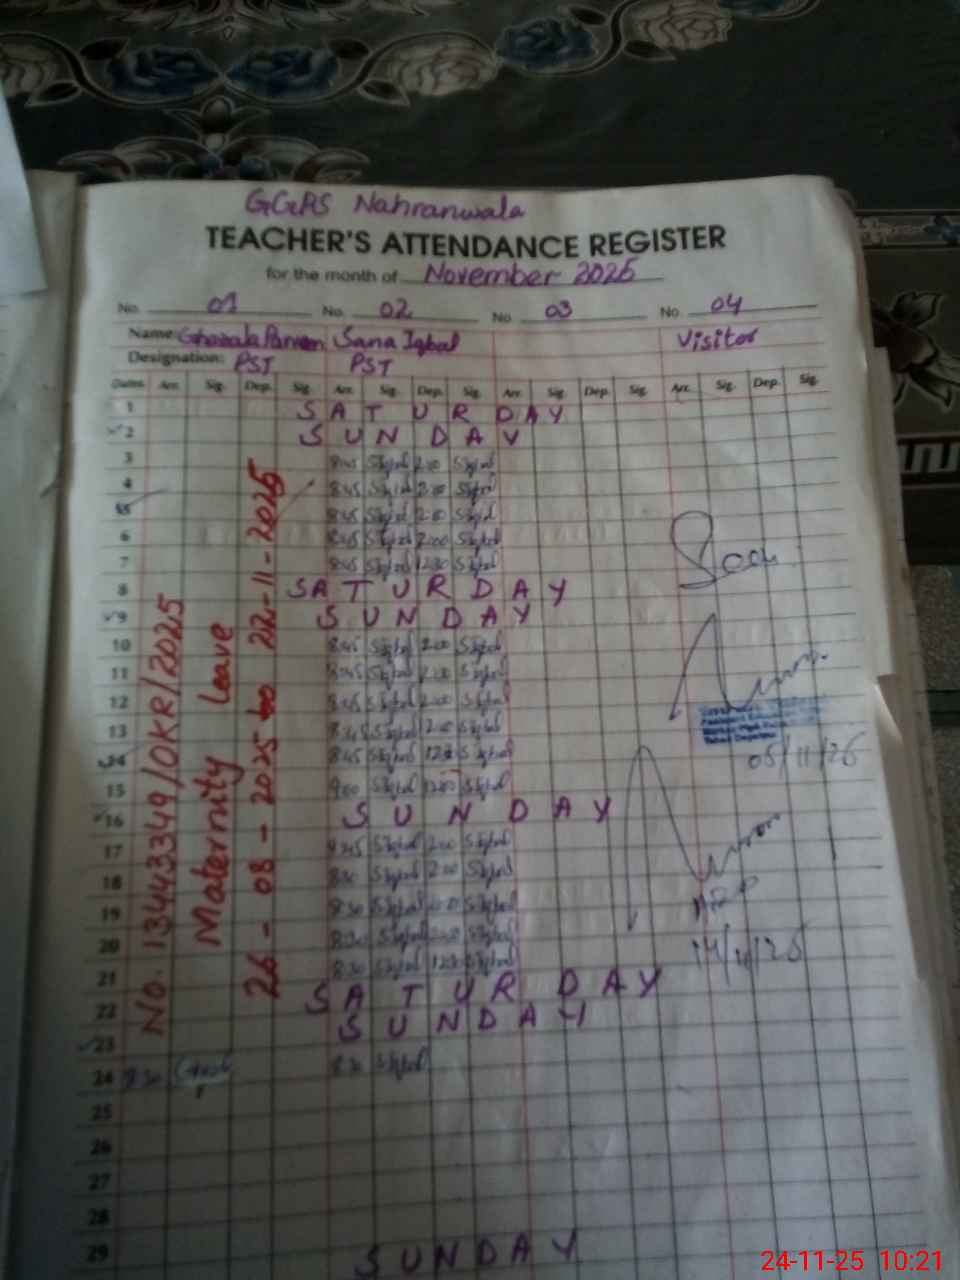 GGPS Nahranwala
TEACHER'S ATTENDANCE REGISTER
for the month of November 2025
No. 01 No. 02 No. 03 No. 04
Name: Ghazala Parveen Sana Iqbal Visitor
Designation: PST PST
Dates Arr. Sig. Dep. Sig. Arr. Sig. Dep. Sig. Arr. Sig. Dep. Sig. Arr. Sig. Dep. Sig.
1 SATURDAY
2 SUNDAY
3 8:45 SIqbal 2:00 SIqbal
4 8:45 SIqbal 2:00 SIqbal
5 8:45 SIqbal 2:00 SIqbal
6 8:45 SIqbal 2:00 SIqbal
7 8:45 SIqbal 12:30 SIqbal
8 SATURDAY
9 SUNDAY
10 8:45 SIqbal 2:00 SIqbal
11 8:45 SIqbal 2:00 SIqbal
12 8:45 SIqbal 2:00 SIqbal
13 8:45 SIqbal 2:00 SIqbal
14 8:45 SIqbal SIqbal
15 9:00 SIqbal SIqbal
16 SUNDAY
17 SIqbal 2:00 SIqbal
18 8:30 SIqbal 2:00 SIqbal
19 8:30 SIqbal 2:00 SIqbal
20 8:30 SIqbal 2:00 SIqbal
21 8:30 SIqbal SIqbal
22 SATURDAY
23 SUNDAY
24 8:30 8:30 SIqbal
25
26
27
28
29 SUNDAY
No. 13443349/OKR/2025
Maternity Leave
26-08-2025 to 22-11-2025
05/11/25
14/11/25
24-11-25 10:21